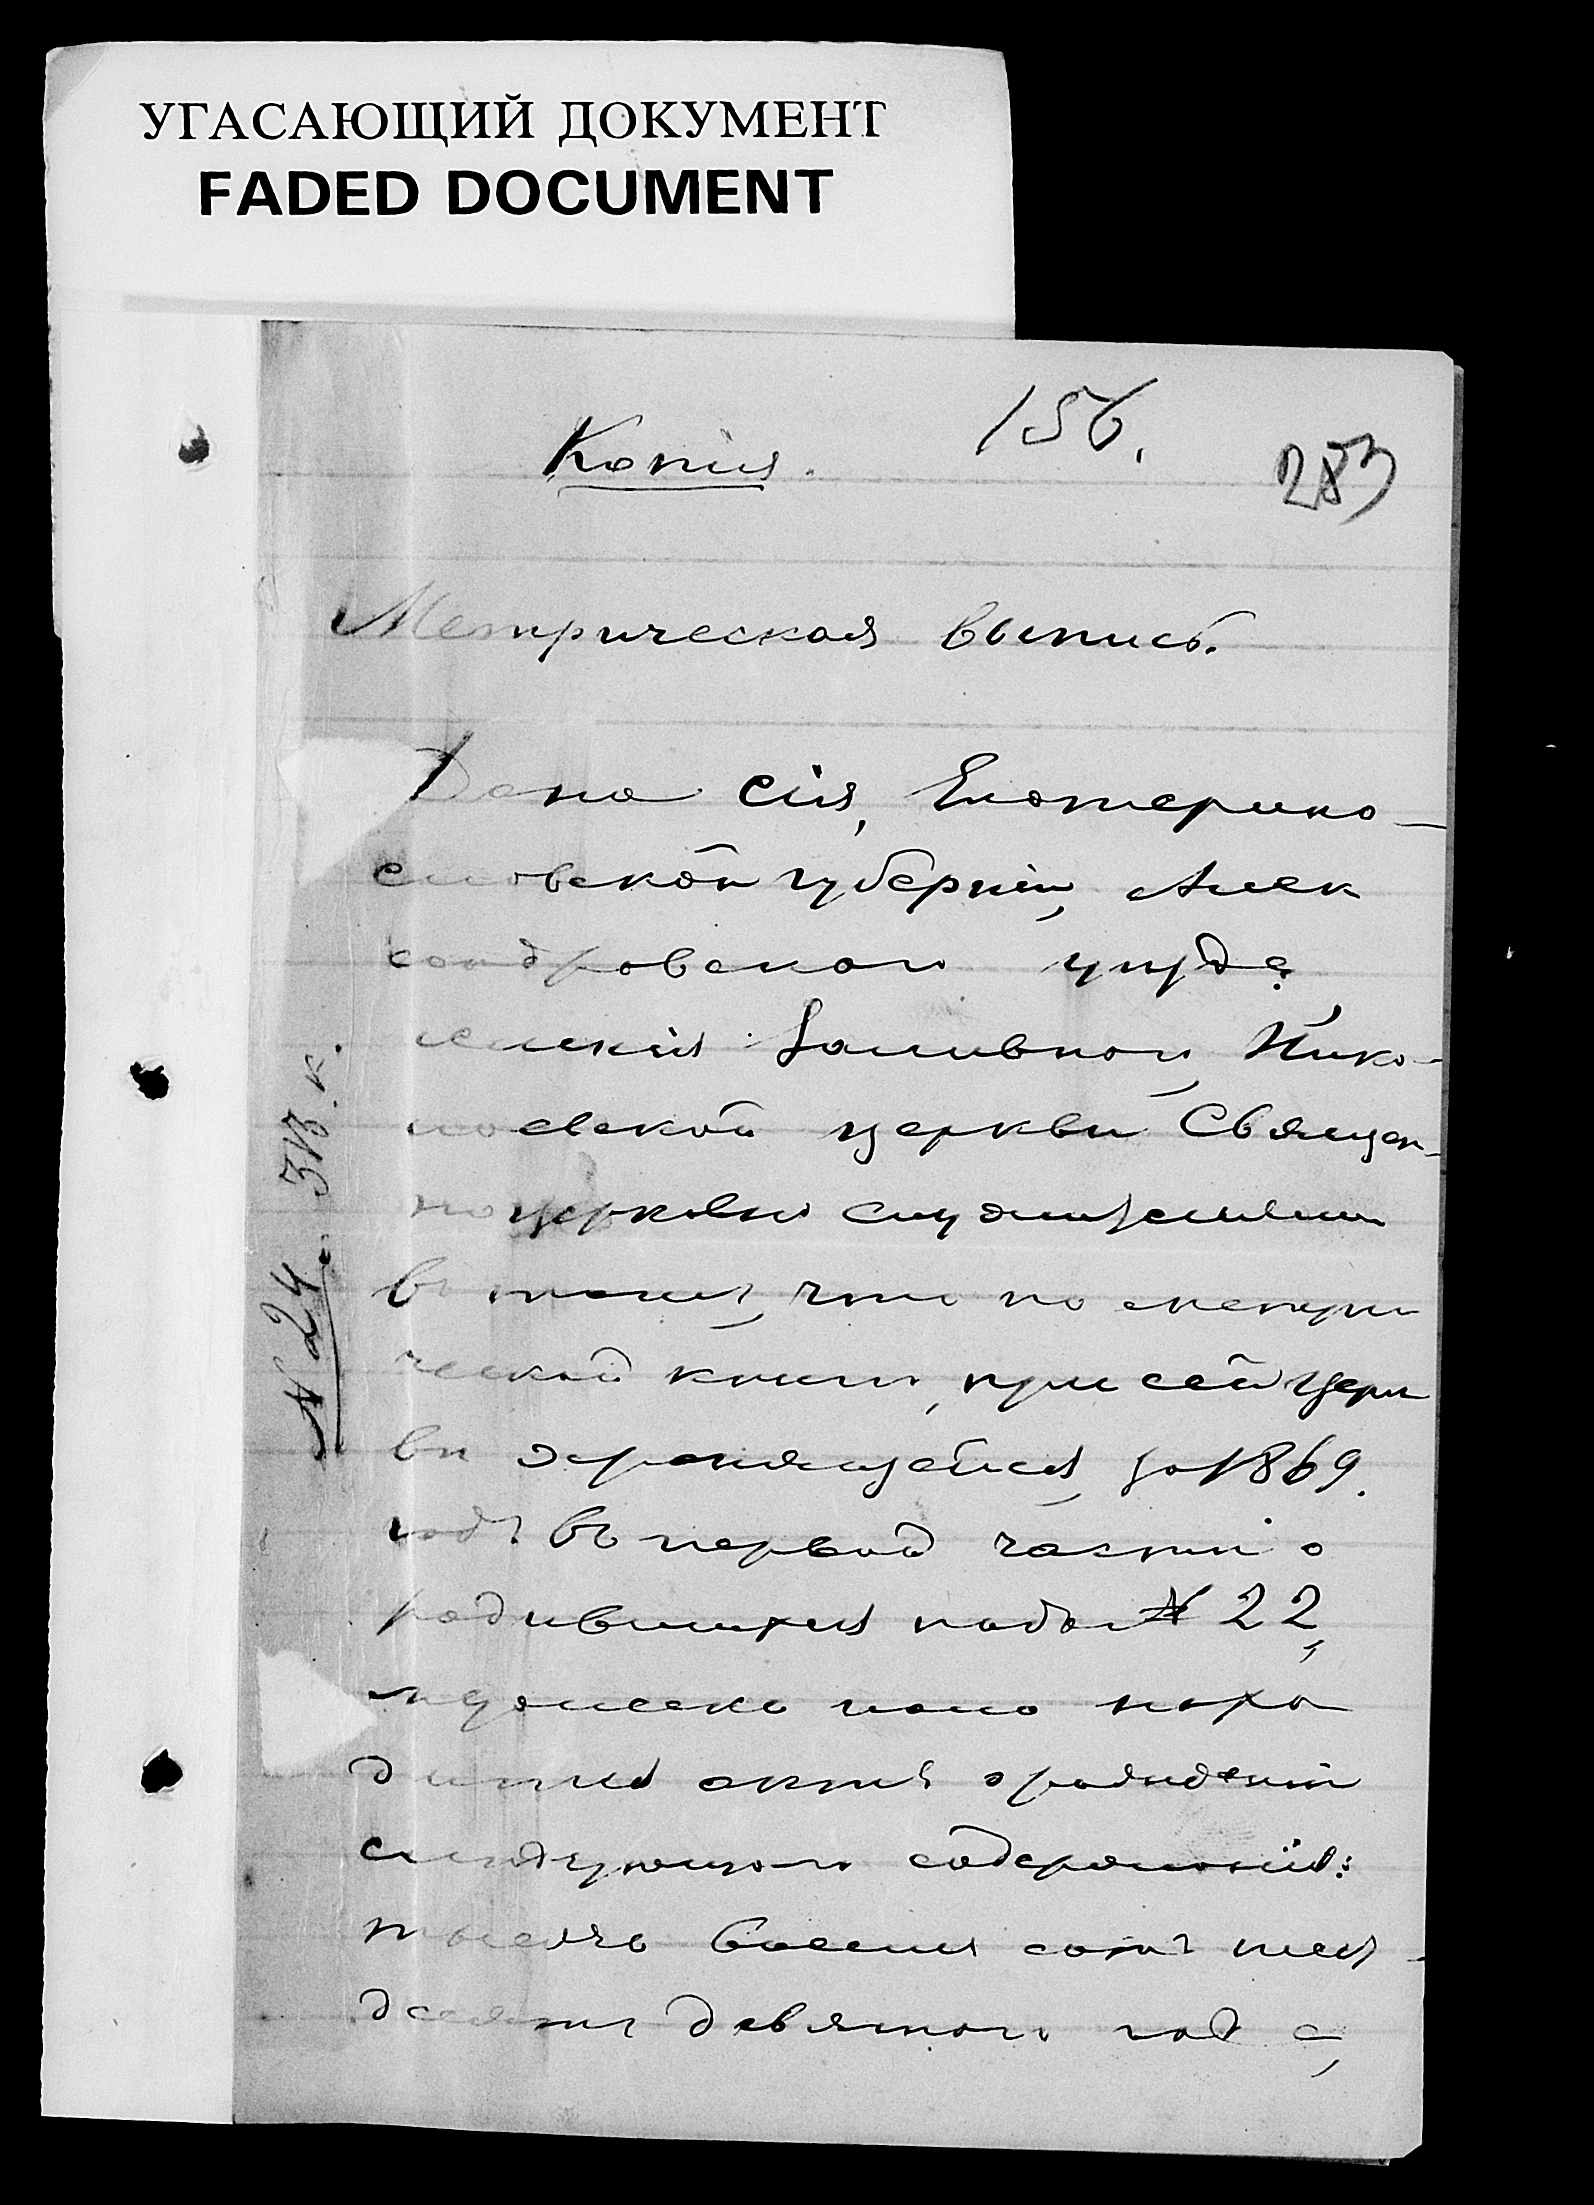 УГАСАЮЩИЙ ДОКУМЕНТ
FADED DOCUMENT
156.
Копія.
283
Метрическая выпись.
Дана сія, Екатерино-
славской губерніи, Алек
сандровского уѣзда
селенія Заливного, Нико-
лаевской церкви Священ-
но церковно служителями
въ томъ, что по метри
ческой книгѣ, при сей церк
ви хранящейся, за 1869.
годъ въ первой части о
родившихся подъ № 22,
мужеска пола нахо
дится актъ о рожденіи
слѣдующаго содержанія:
тысяча восемь сотъ шест-
десятъ девятого года,
№ 24.